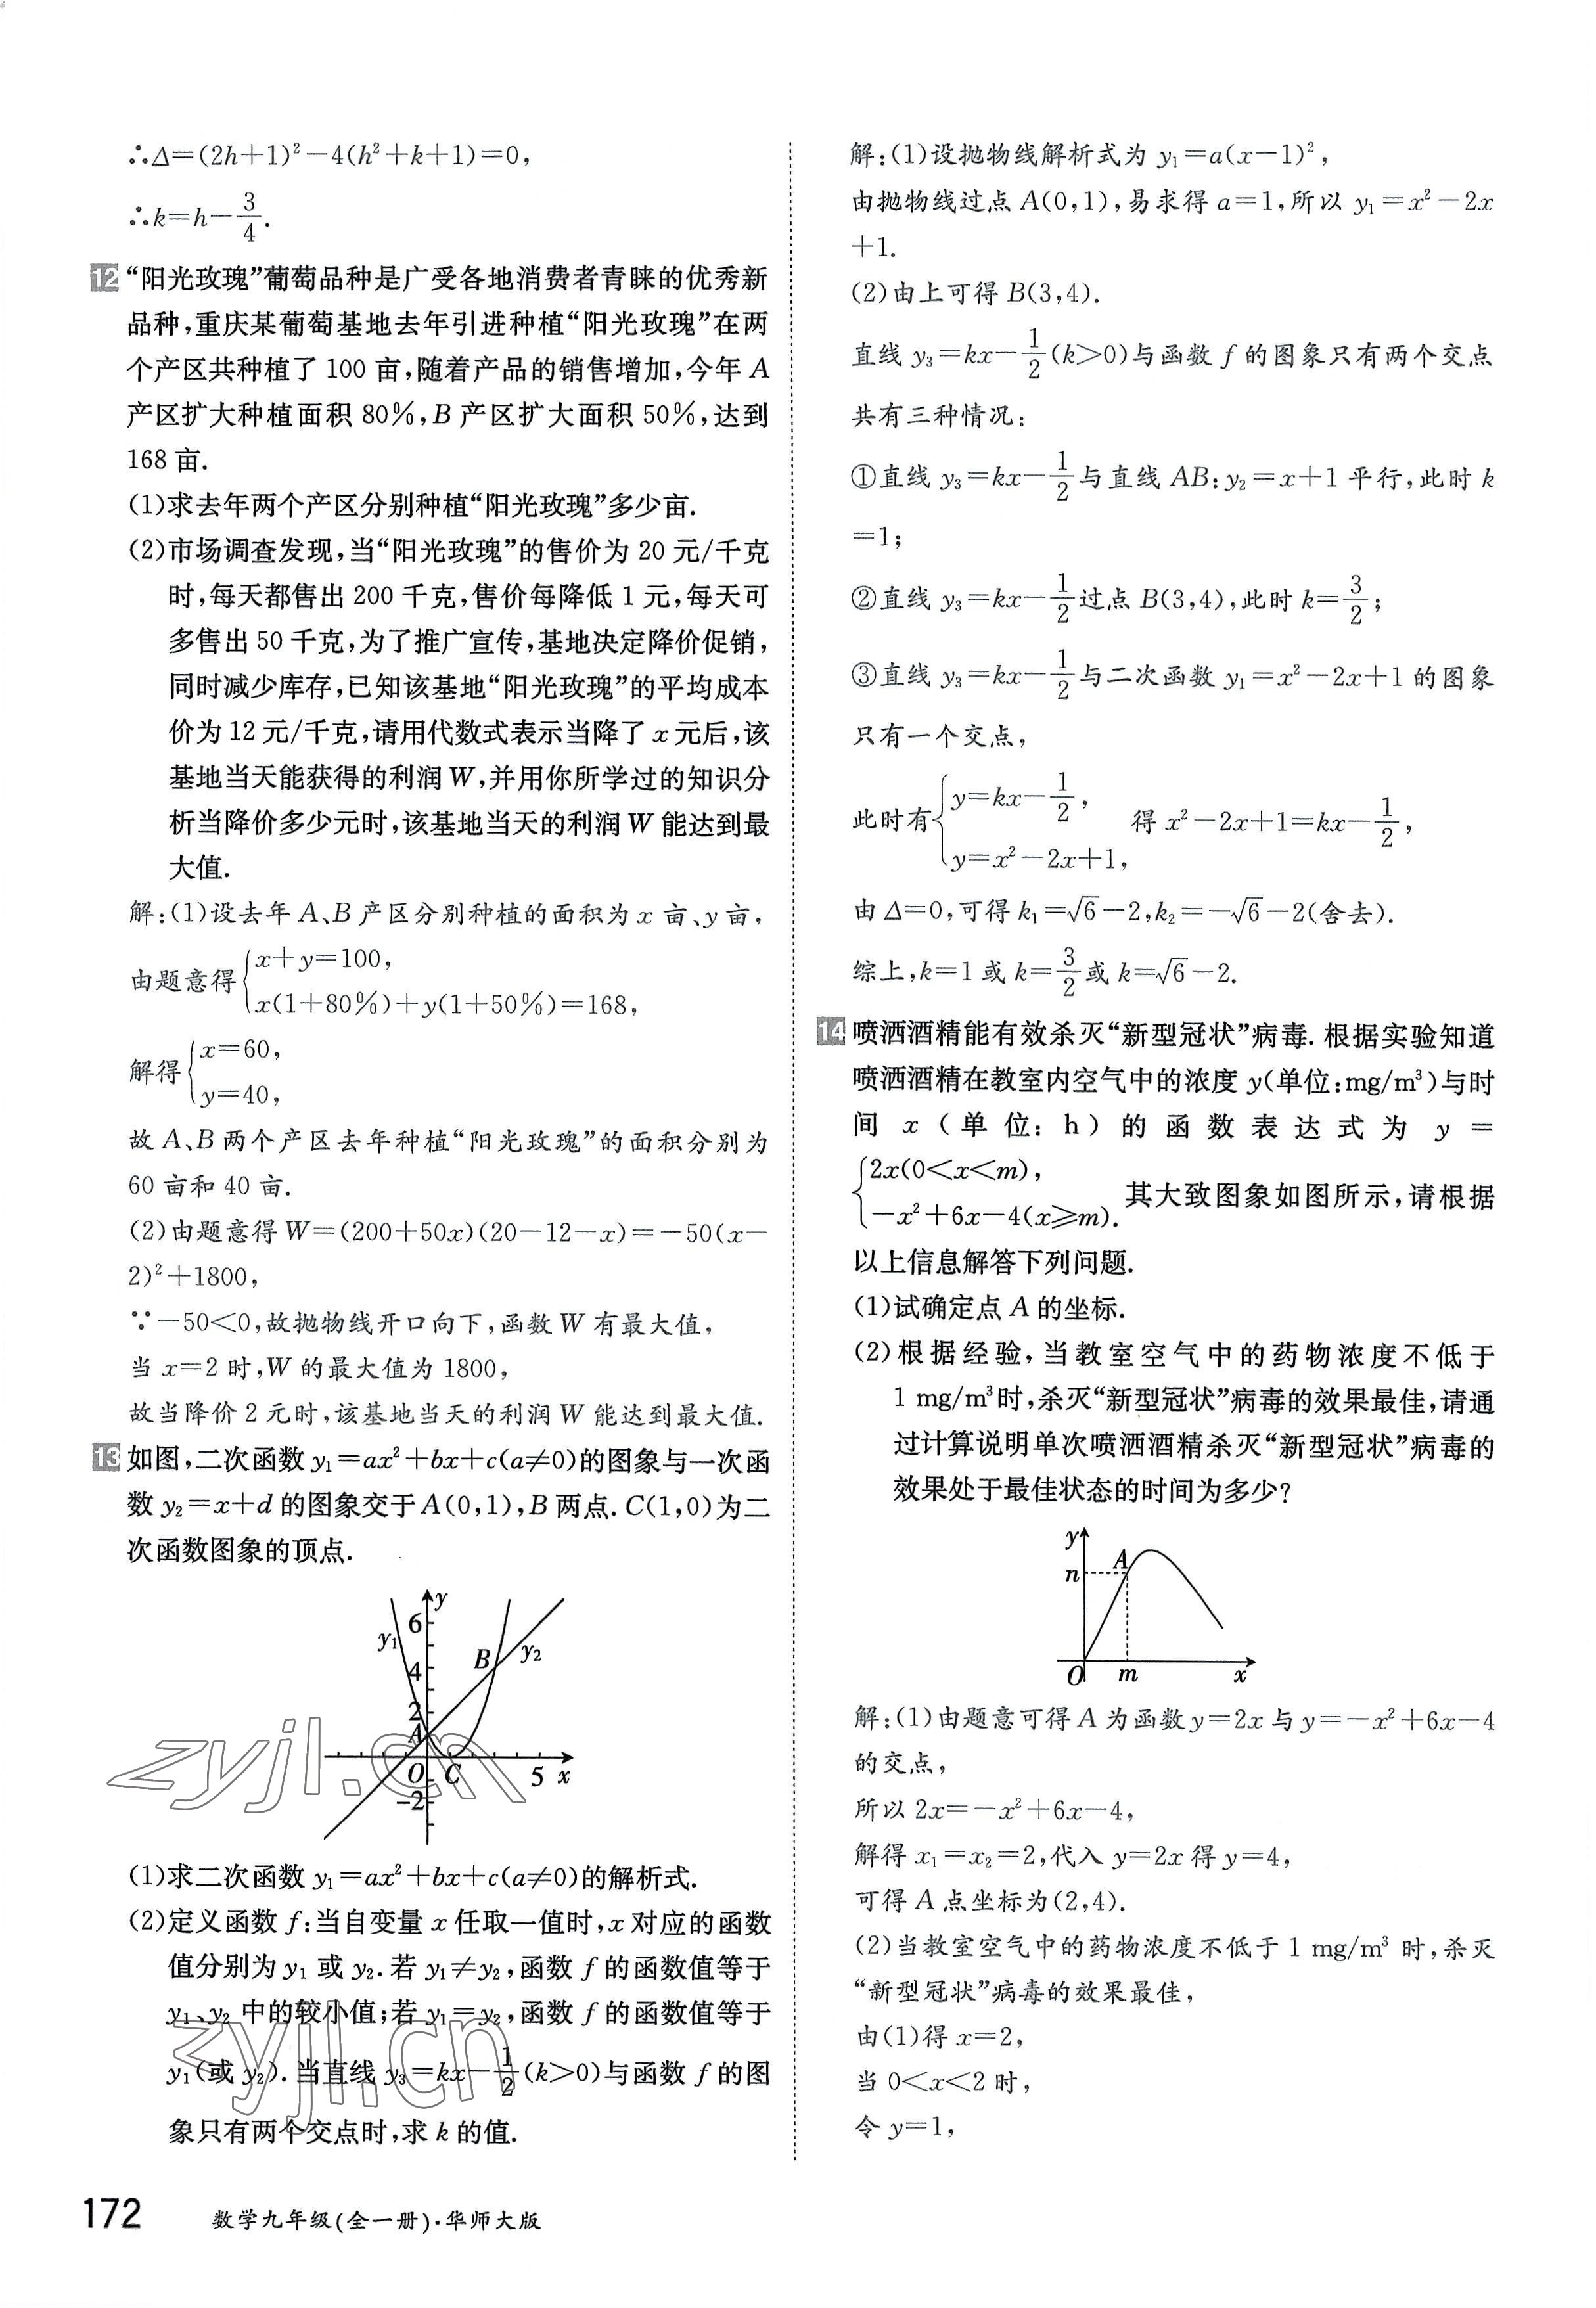 ∴Δ=(2h+1)²-4(h²+k+1)=0,
∴k=h-3/4.
12 “阳光玫瑰”葡萄品种是广受各地消费者青睐的优秀新
品种,重庆某葡萄基地去年引进种植“阳光玫瑰”在两
个产区共种植了 100 亩,随着产品的销售增加,今年 A
产区扩大种植面积 80%,B 产区扩大面积 50%,达到
168 亩.
(1)求去年两个产区分别种植“阳光玫瑰”多少亩.
(2)市场调查发现,当“阳光玫瑰”的售价为 20 元/千克
时,每天都售出 200 千克,售价每降低 1 元,每天可
多售出 50 千克,为了推广宣传,基地决定降价促销,
同时减少库存,已知该基地“阳光玫瑰”的平均成本
价为 12 元/千克,请用代数式表示当降了 x 元后,该
基地当天能获得的利润 W,并用你所学过的知识分
析当降价多少元时,该基地当天的利润 W 能达到最
大值.
解:(1)设去年 A、B 产区分别种植的面积为 x 亩、y 亩,
由题意得{x+y=100,
x(1+80%)+y(1+50%)=168,
解得{x=60,
y=40,
故 A、B 两个产区去年种植“阳光玫瑰”的面积分别为
60 亩和 40 亩.
(2)由题意得 W=(200+50x)(20-12-x)=-50(x-
2)²+1800,
∵-50<0,故抛物线开口向下,函数 W 有最大值,
当 x=2 时,W 的最大值为 1800,
故当降价 2 元时,该基地当天的利润 W 能达到最大值.
13 如图,二次函数 y₁=ax²+bx+c(a≠0)的图象与一次函
数 y₂=x+d 的图象交于 A(0,1),B 两点. C(1,0)为二
次函数图象的顶点.
y
6
y₁
B
y₂
4
2
A
O C 5 x
-2
(1)求二次函数 y₁=ax²+bx+c(a≠0)的解析式.
(2)定义函数 f:当自变量 x 任取一值时,x 对应的函数
值分别为 y₁ 或 y₂. 若 y₁≠y₂,函数 f 的函数值等于
y₁、y₂ 中的较小值;若 y₁=y₂,函数 f 的函数值等于
y₁(或 y₂). 当直线 y₃=kx-1/2(k>0)与函数 f 的图
象只有两个交点时,求 k 的值.
zyjl.cn
zyjl.cn
172 数学九年级(全一册)·华师大版
解:(1)设抛物线解析式为 y₁=a(x-1)²,
由抛物线过点 A(0,1),易求得 a=1,所以 y₁=x²-2x
+1.
(2)由上可得 B(3,4).
直线 y₃=kx-1/2(k>0)与函数 f 的图象只有两个交点
共有三种情况:
①直线 y₃=kx-1/2与直线 AB:y₂=x+1 平行,此时 k
=1;
②直线 y₃=kx-1/2过点 B(3,4),此时 k=3/2;
③直线 y₃=kx-1/2与二次函数 y₁=x²-2x+1 的图象
只有一个交点,
此时有{y=kx-1/2,
y=x²-2x+1, 得 x²-2x+1=kx-1/2,
由 Δ=0,可得 k₁=√6-2,k₂=-√6-2(舍去).
综上,k=1 或 k=3/2或 k=√6-2.
14 喷洒酒精能有效杀灭“新型冠状”病毒. 根据实验知道
喷洒酒精在教室内空气中的浓度 y(单位:mg/m³)与时
间 x(单位:h)的函数表达式为 y=
{2x(0<x<m),
-x²+6x-4(x≥m). 其大致图象如图所示,请根据
以上信息解答下列问题.
(1)试确定点 A 的坐标.
(2)根据经验,当教室空气中的药物浓度不低于
1 mg/m³时,杀灭“新型冠状”病毒的效果最佳,请通
过计算说明单次喷洒酒精杀灭“新型冠状”病毒的
效果处于最佳状态的时间为多少?
y
n A
O m x
解:(1)由题意可得 A 为函数 y=2x 与 y=-x²+6x-4
的交点,
所以 2x=-x²+6x-4,
解得 x₁=x₂=2,代入 y=2x 得 y=4,
可得 A 点坐标为(2,4).
(2)当教室空气中的药物浓度不低于 1 mg/m³ 时,杀灭
“新型冠状”病毒的效果最佳,
由(1)得 x=2,
当 0<x<2 时,
令 y=1,